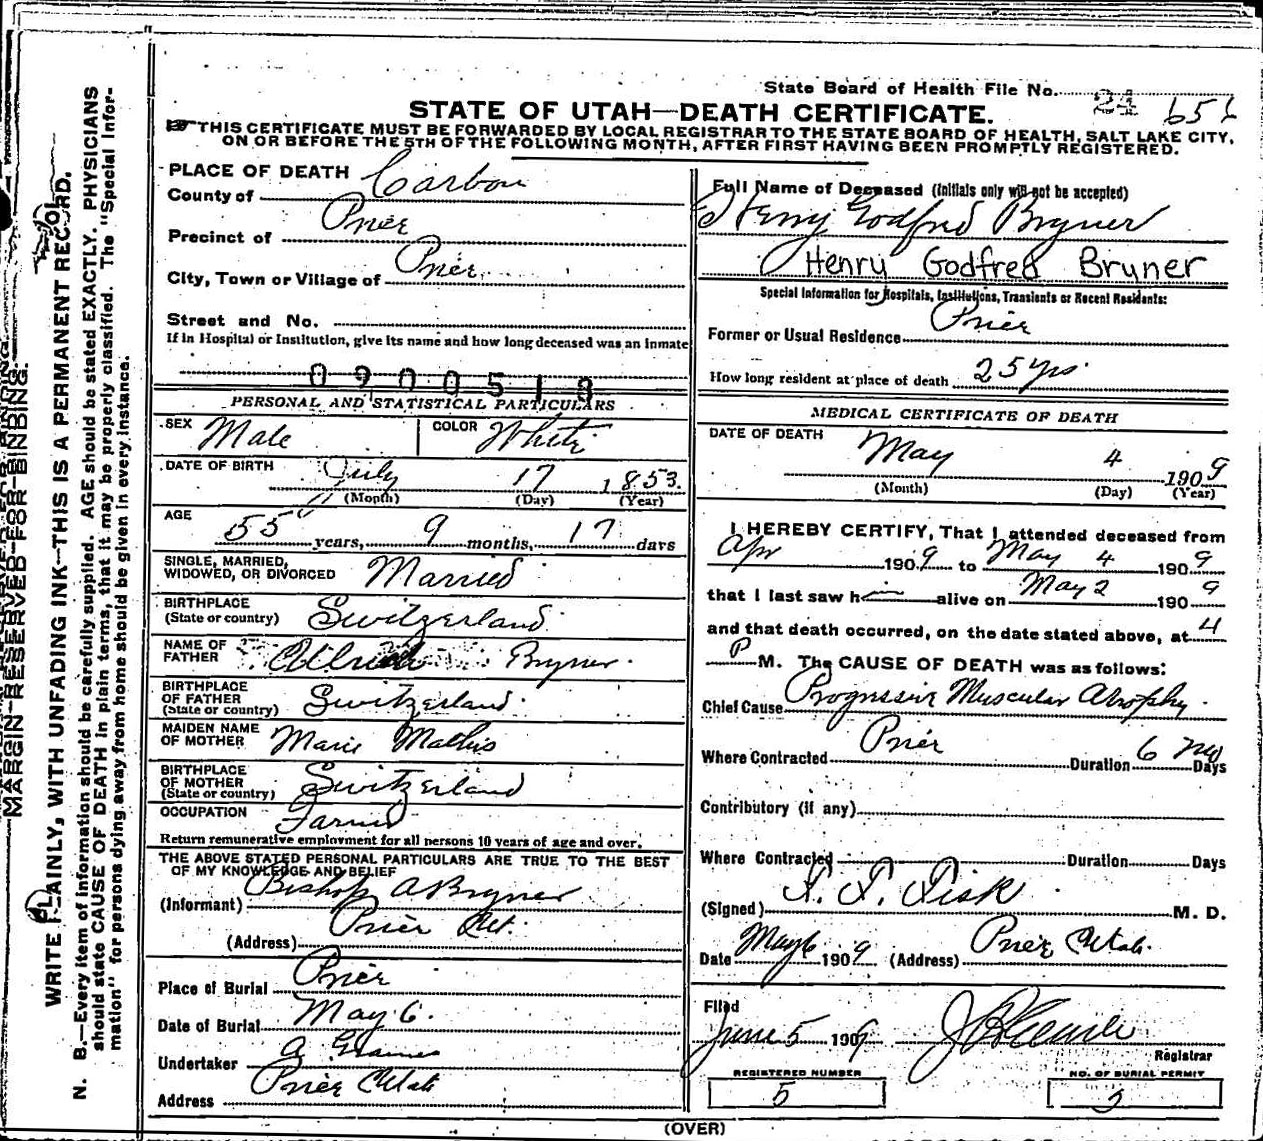 State Board of Health File No. 24 656
STATE OF UTAH—DEATH CERTIFICATE.
THIS CERTIFICATE MUST BE FORWARDED BY LOCAL REGISTRAR TO THE STATE BOARD OF HEALTH, SALT LAKE CITY,
ON OR BEFORE THE 5TH OF THE FOLLOWING MONTH, AFTER FIRST HAVING BEEN PROMPTLY REGISTERED.
MARGIN RESERVED FOR BINDING.
WRITE PLAINLY, WITH UNFADING INK—THIS IS A PERMANENT RECORD.
N. B.—Every item of information should be carefully supplied. AGE should be stated EXACTLY. PHYSICIANS
should state CAUSE OF DEATH in plain terms, that it may be properly classified. The "Special Infor-
mation" for persons dying away from home should be given in every instance.
PLACE OF DEATH
County of Carbon
Precinct of Price
City, Town or Village of Price
Street and No.
If in Hospital or Institution, give its name and how long deceased was an inmate
0900518
PERSONAL AND STATISTICAL PARTICULARS
SEX Male COLOR White
DATE OF BIRTH July 17 1853.
(Month) (Day) (Year)
AGE 55 years, 9 months, 17 days
SINGLE, MARRIED,
WIDOWED, OR DIVORCED Married
BIRTHPLACE
(State or country) Switzerland
NAME OF
FATHER Bryner.
BIRTHPLACE
OF FATHER
(State or country) Switzerland.
MAIDEN NAME
OF MOTHER Marie Mathis
BIRTHPLACE
OF MOTHER
(State or country) Switzerland
OCCUPATION Farmer
Return remunerative employment for all persons 10 years of age and over.
THE ABOVE STATED PERSONAL PARTICULARS ARE TRUE TO THE BEST
OF MY KNOWLEDGE AND BELIEF
(Informant) Bishop A Bryner
(Address) Price Ut.
Place of Burial Price
Date of Burial May 6.
Undertaker
Address Price Utah
Full Name of Deceased (Initials only will not be accepted)
Henry Godfred Bryner
Henry Godfred Bryner
Special Information for Hospitals, Institutions, Transients or Recent Residents:
Former or Usual Residence Price
How long resident at place of death 25 yrs.
MEDICAL CERTIFICATE OF DEATH
DATE OF DEATH May 4 1909
(Month) (Day) (Year)
I HEREBY CERTIFY, That I attended deceased from
Apr 1909 to May 4 1909
that I last saw h alive on May 2 1909
and that death occurred, on the date stated above, at 4
P M. The CAUSE OF DEATH was as follows:
Chief Cause Progressive Muscular Atrophy.
Where Contracted Price Duration 6 mo Days
Contributory (if any)
Where Contracted Duration Days
(Signed) F. F. Fisk M. D.
Date May 6 1909 (Address) Price Utah.
Filed
June 5 1909
Registrar
REGISTERED NUMBER NO. OF BURIAL PERMIT
5 3
(OVER)